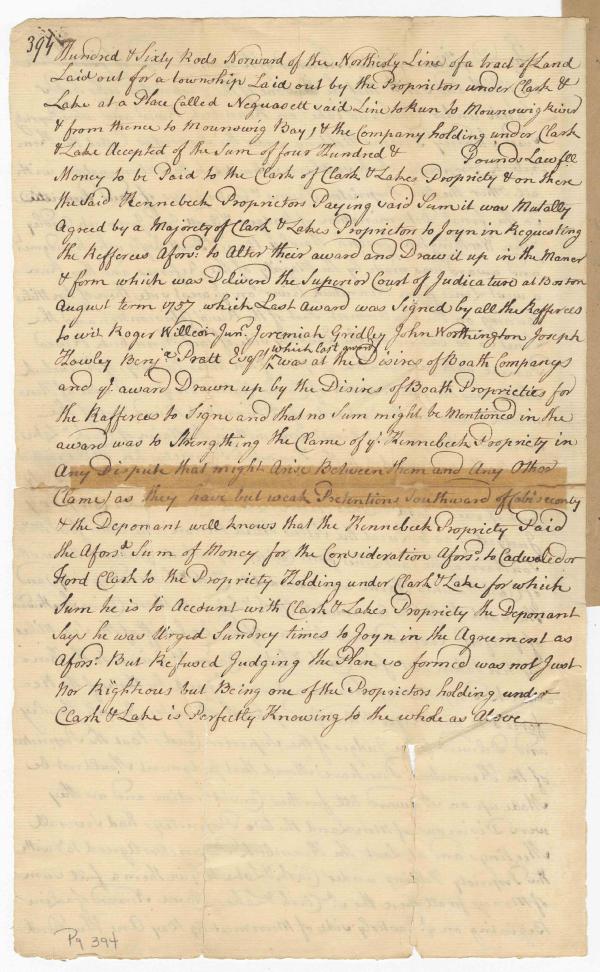 394
Hundred & Sixty Rods Norward of the Northcoly Line of a tract of Land
Laid out for a township Laid out by the Proprietors under Clark &
Lake at a Place Called Neguasett said Line to Run to Mounswig River
& from thence to Mounswig Bay, & the Company holding under Clark
& Lake Accepted of the Sum of four Hundred & Pounds Lawfll
Money to be Paid to the Clark of Clark & Lakes Propriety & on there
the said Kennebeck Proprietors Paying said Sum it was Mutally
Agreed by a Majorety of Clark & Lakes Proprietors to Joyn in Requesting
the Refferees Aforsd. to Alter their award and Draw it up in the Maner
& form which was Deliverd the Superior Court of Judicature at Boston
August term 1757 which Last Award was Signed by all the Refferees
to wit Roger Junr. Jeremiah Gridley John Worthington Joseph
Howley Benja Pratt Esqrs which last award was at the Disires of Boath Companys
and ye. award Drawn up by the Disires of Boath Proprieties for
the Rafferees to Signe and that no Sum might be Mentioned in the
award was to Strengthing the Clame of ye. Kennebeck Propriety in
Any Dispute that might Arise Between them and Any Other
Clame) as they have but weak Pretentions Southward of Cobiseconty
& the Deponant well knows that the Kennebeck Propriety Paid
the Aforsd. Sum of Money for the Consideration Aforsd. to Cadwaleder
Ford Clark to the Propriety Holding under Clark & Lake for which
Sum he is to Account with Clark & Lakes Propriety the Deponant
Says he was Urged Sundrey times to Joyn in the Agreement as
Aforsd. But Refused Judging the Plan so formed was not Just
Nor Rightious but Being one of the Proprietors holding under
Clark & Lake is Perfectly Knowing to the whole as Above
Pg 394